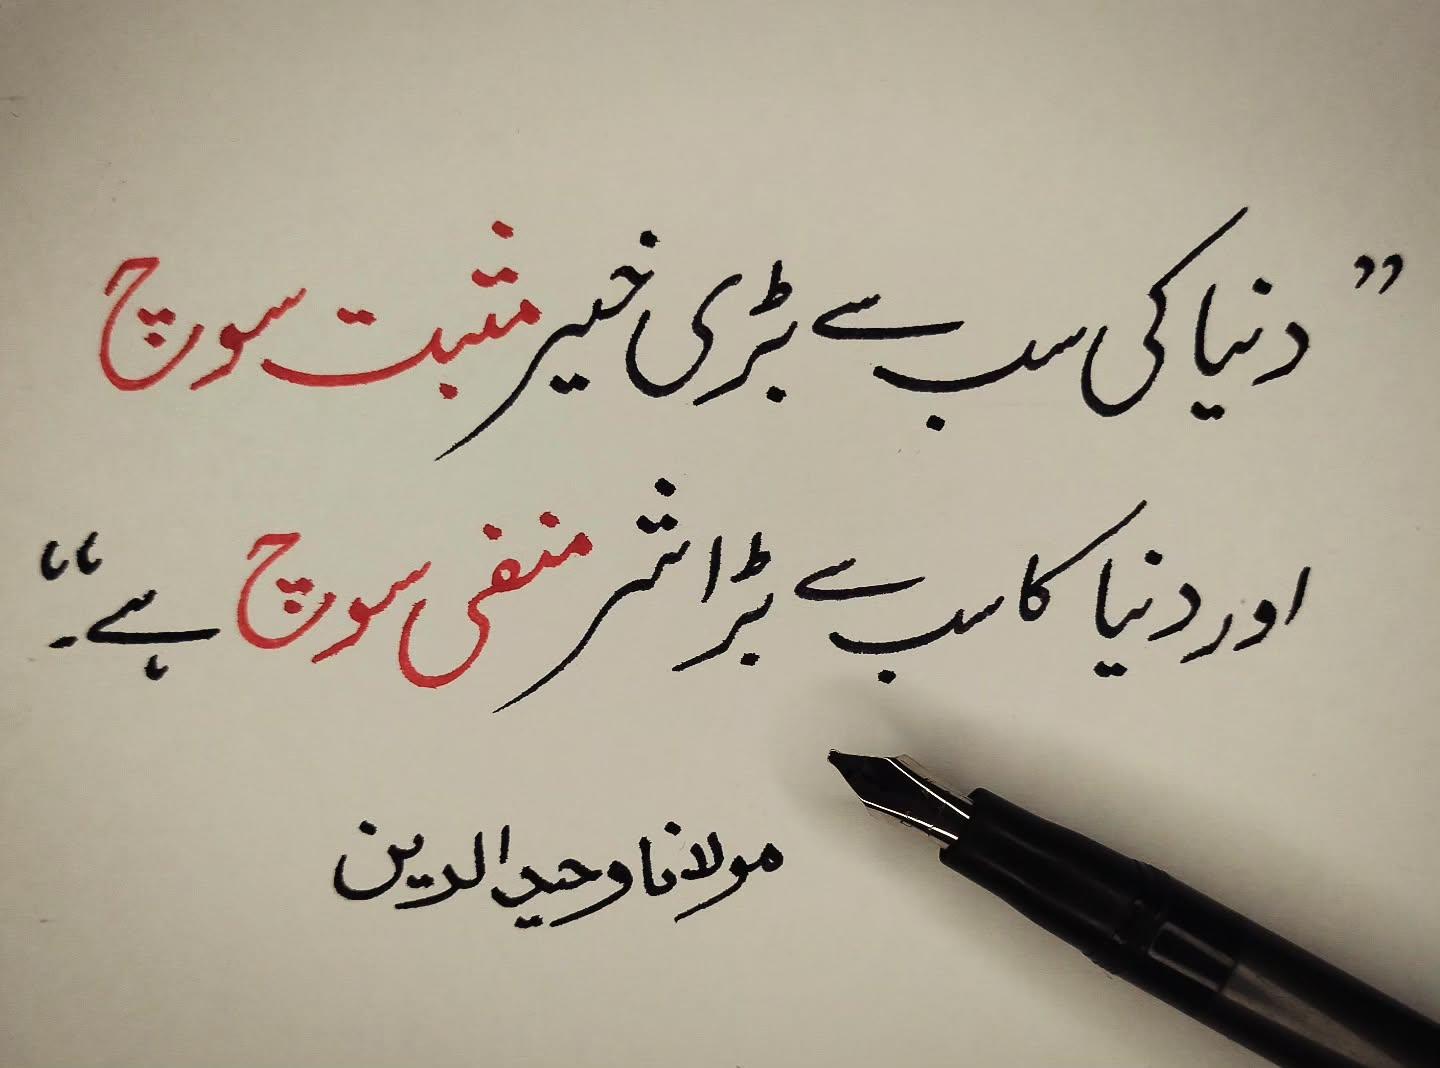 ”دنیا کی سب سے بڑی خیر مثبت سوچ
اور دنیا کا سب سے بڑا شر منفی سوچ ہے۔“
مولانا وحید الدین